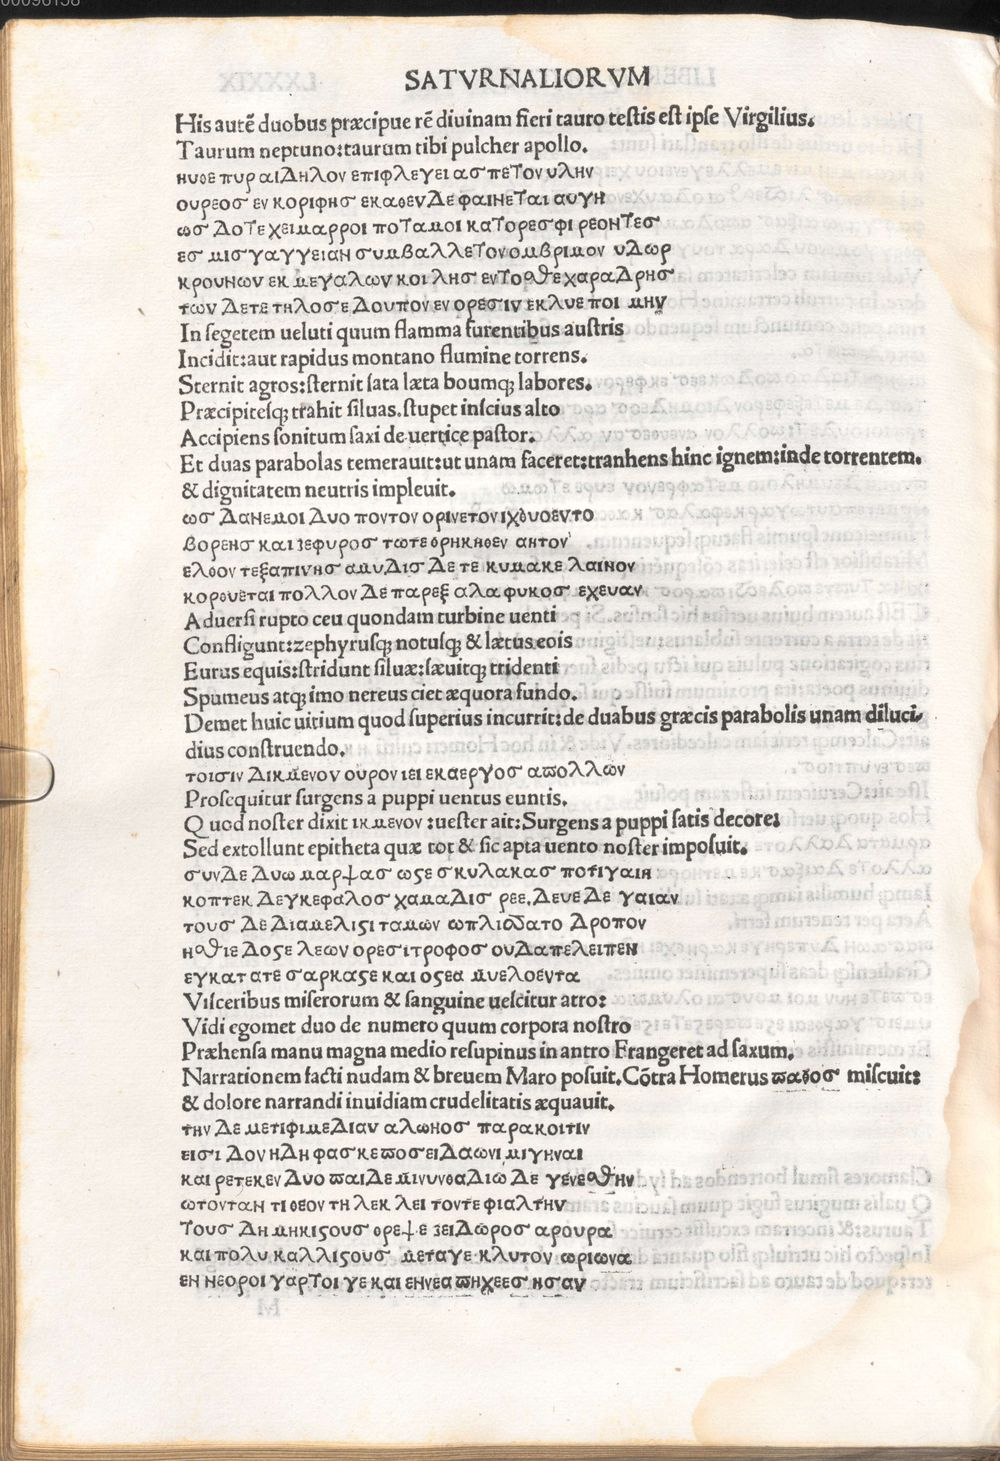 SATVRNALIORVM
His autē duobus præcipue rē diuinam fieri tauro testis est ipse Virgilius.
Taurum neptuno:taurum tibi pulcher apollo.
ηυθε πυραιδηλον επιφλεγει ασπετον υλην
ουρεοσ εν κοριφησ εκαθεν δε φαινεται αυγη
ωσ δοτε χειμαρροι ποταμοι κατορεσφι ρεοντεσ
εσ μισγαγγειαν συμβαλλετον ομβριμον υδωρ
κρουνων εκ μεγαλων κοιλησ εντοσθε χαραδρησ
των δετε τηλοσε δουπον εν ορεσιν εκλυε ποιμην
In segetem ueluti quum flamma furentibus austris
Incidit:aut rapidus montano flumine torrens.
Sternit agros:sternit sata læta boumq; labores.
Præcipitesq; trahit siluas.stupet inscius alto
Accipiens sonitum saxi de uertice pastor.
Et duas parabolas temerauit:ut unam faceret:tranhens hinc ignem:inde torrentem.
& dignitatem neutris impleuit.
ωσ δανεμοι δυο ποντον ορινετον ιχθυοεντο
βορεησ και ζεφυροσ τωτε θρηκηθεν αητον
ελθον τεξαπινησ αμυδισ δε τε κυμακε λαινον
κορθυεται πολλον δε παρεξ αλα φυκοσ εχευαν
Aduersi rupto ceu quondam turbine uenti
Confligunt:zephyrusq; notusq; & lætus eois
Eurus equis:stridunt siluæ:sæuitq; tridenti
Spumeus atq; imo nereus ciet æquora fundo.
Demet huic uitium quod superius incurrit:de duabus græcis parabolis unam diluci-
dius construendo.
τοισιν δικμενον ουρον ιει εκαεργοσ απολλων
Prosequitur surgens a puppi uentus euntis.
Quod noster dixit ικμενον :uester ait:Surgens a puppi satis decore:
Sed extollunt epitheta quæ tot & sic apta uento noster imposuit.
συνδε δυω μαρψασ ωστε σκυλακασ ποτιγαιη
κοπτεκ δεγκεφαλοσ χαμαδισ ρεε.δευε δε γαιαν
τουσ δε διαμελιστι ταμων ωπλισσατο δροπον
ησθιε δοστε λεων ορεσιτροφοσ ουδαπελειπεν
εγκατατε σαρκαστε και οστεα μυελοεντα
Visceribus miserorum & sanguine uescitur atro:
Vidi egomet duo de numero quum corpora nostro
Præhensa manu magna medio resupinus in antro Frangeret ad saxum.
Narrationem facti nudam & breuem Maro posuit.Cōtra Homerus παθοσ miscuit:
& dolore narrandi inuidiam crudelitatis æquauit.
την δε μετιφιμεδιαν αλωηοσ παρακοιτιν
εισιδον ηδη φασκε ποσειδαωνι μιγηναι
και ρετεκεν δυο παιδε μινυνθαδιω δε γενεσθην
ωτονταν τι θεον τηλεκλειτοντε φιαλτην
τουσ δη μηκιστουσ θρεψε ζειδωροσ αρουρα
και πολυ καλλιστουσ μεταγε κλυτον ωριωνα
εν νεοροι γαρ τοι γε και εννεα πηχεεσ ησαν